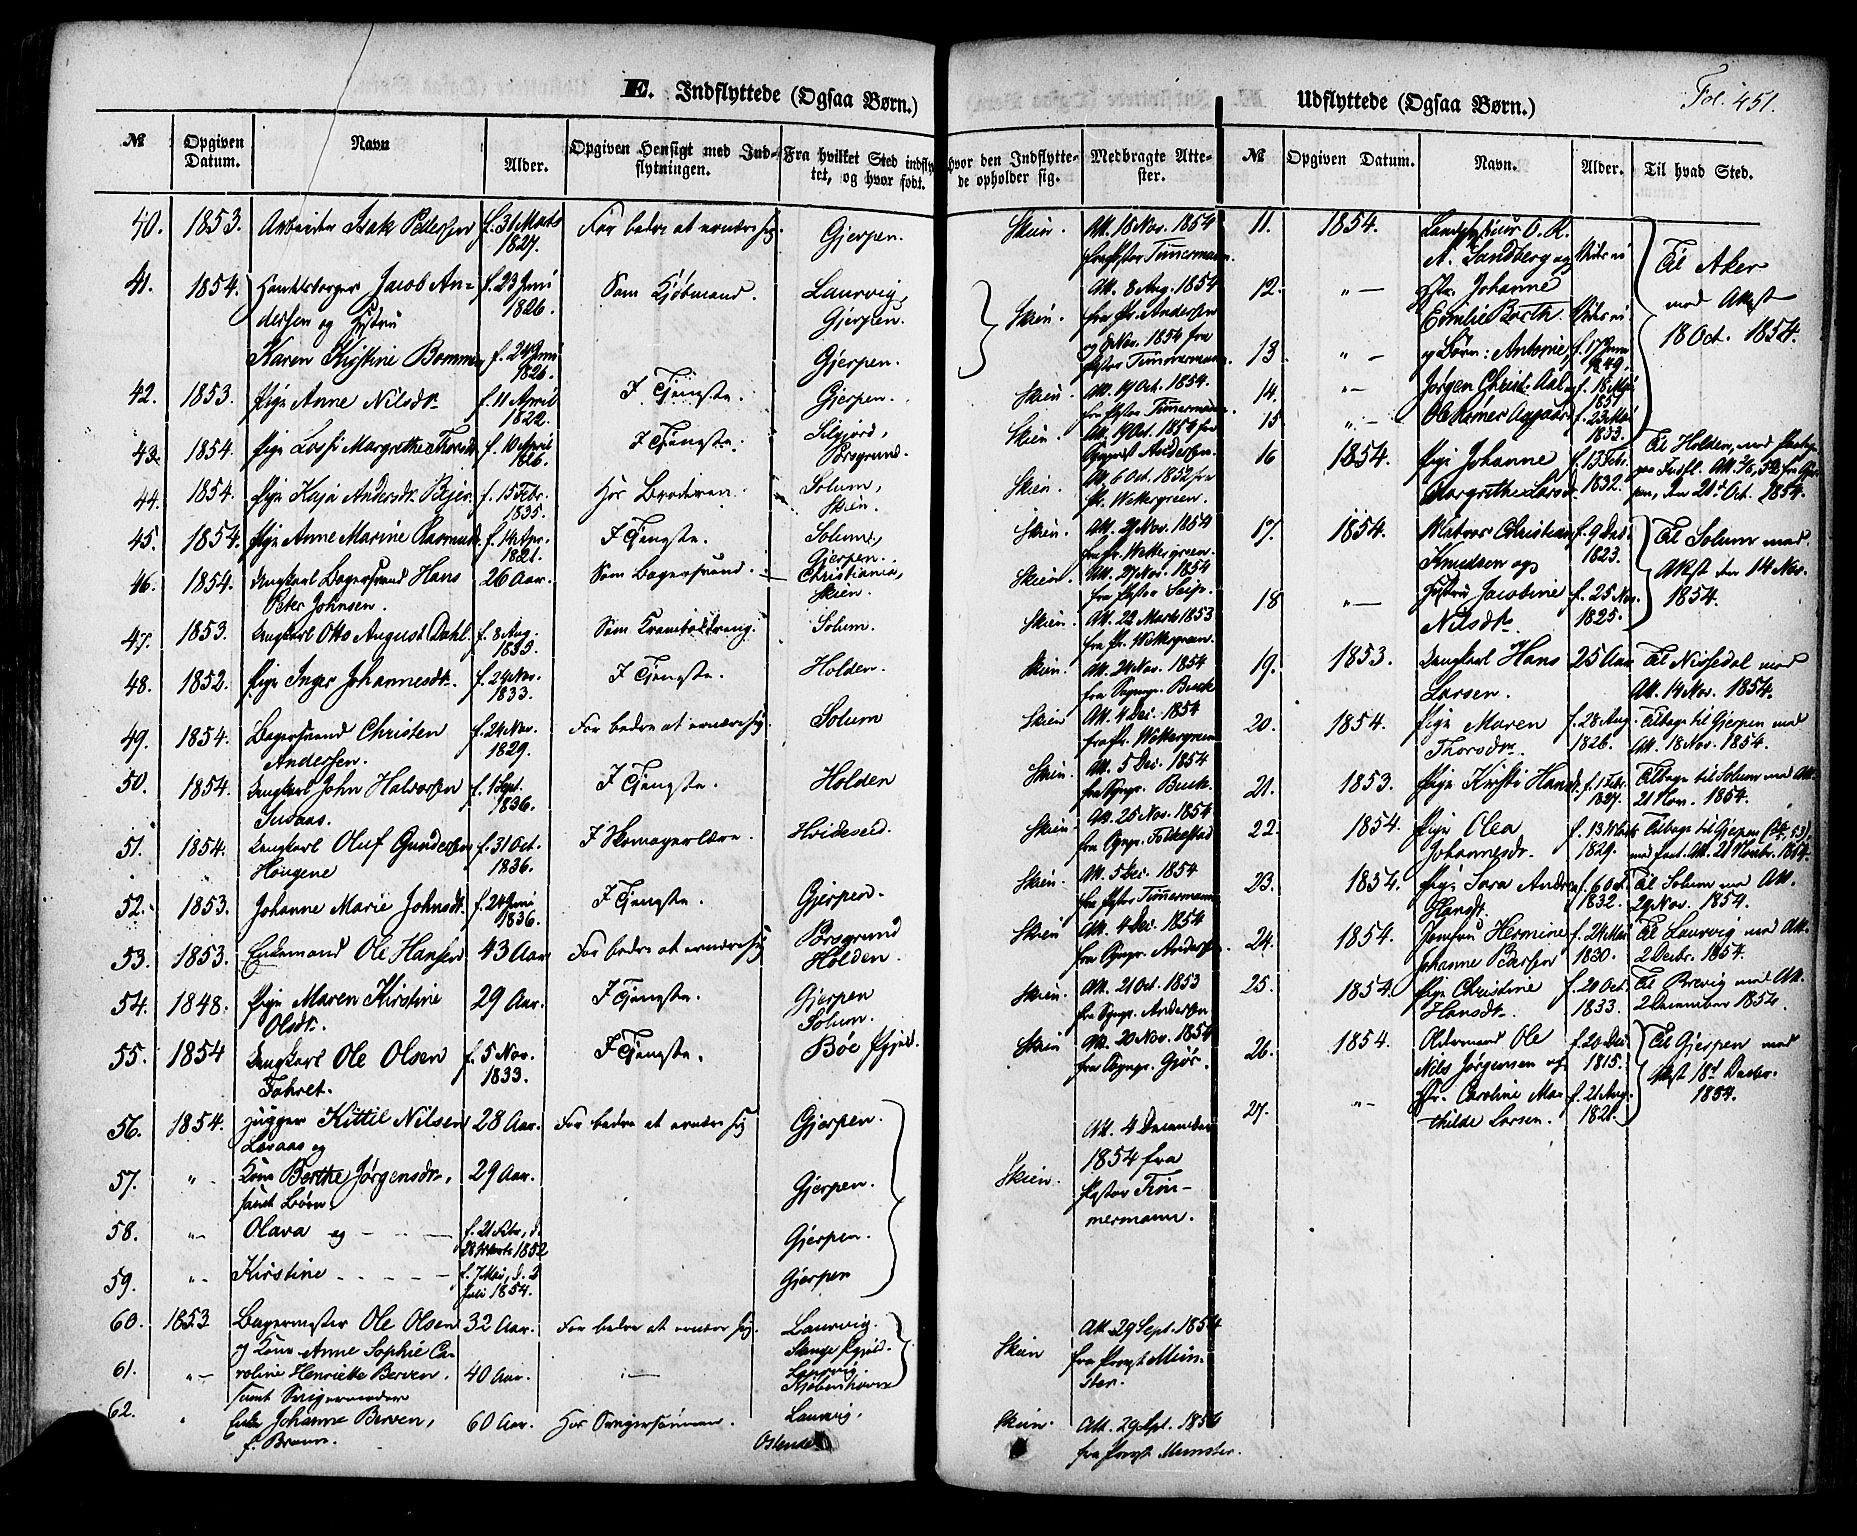 E. Indflyttede (Ogsaa Børn.)
Udflyttede (Ogsaa Børn.)
Fol. 451.
№ Opgiven Datum. Navn Alder. Opgiven Hensigt med Indflytningen. Fra hvilket Sted indflyttet, og hvor født. Hvor den Indflyttede opholder sig. Medbragte Attester.
№ Opgiven Datum. Navn. Alder. Til hvad Sted.
40. 1853. Arbeider Isak Pettersen f. 31 Marts 1827. For bedre at ernære sig. Gjerpen. Skien. Att. 18 Nov. 1854 fra Pastor Timmermann.
41. 1854. Handelsborger Jacob Andersen og Hustru f. 23 Juni 1826. Som Kjøbmand. Laurvig, Gjerpen. Skien. Att. 8 Aug. 1854 fra Pr. Andersen
Karen Kirstine Bomme f. 24 Juni 1826. Gjerpen. og Nov. 1854 fra Pastor Timmermann.
42. 1853. Pige Anne Nilsdtr. f. 11 April 1822. I Tjeneste. Gjerpen. Skien. Att. 19 Oct. 1854. fra Pastor Timmermann.
43. 1854. Pige Margrethe Thorsdtr f. 10 April 1826. I Tjeneste. Silgjord, Porsgrund. Skien. Att. 19 Oct. 1854 fra Andersen.
44. 1854. Pige Kaja Andersdtr. Bejer f. 15 Febr. 1835. Hos Broderen. Solum, Skien. Skien. Att. 6 Oct. 1852 fra Pr. Wettergreen.
45. 1854. Pige Anne Marine Rasmusd. f. 14 Apr. 1821. I Tjeneste. Solum, Gjerpen. Skien. Att. 21 Nov. 1854 fra Pr. Wettergreen.
46. 1854. Ungkarl Bagersvend Hans Peter Johnsen. 26 Aar. Som Bagersvend. Christiania, Skien. Skien. Att. 27 Nov. 1854 fra Pastor
47. 1853. Ungkarl Otto August Dahl. f. 8 Aug. 1835. Som Kramboddreng. Solum. Skien. Att. 22 Marts 1853 fra Pr. Wettergreen.
48. 1852. Pige Inger Johannesdtr. f. 24 Nov. 1833. I Tjeneste. Holden. Skien. Att. 24 Nov. 1854 fra Sognepr. Buck
49. 1854. Bagersvend Christen Andersen. f. 24 Nov. 1829. For bedre at ernære sig. Solum Skien Att. 4 Dec. 1854 fra Pr. Wettergreen
50. 1854. Ungkarl John Halvorsen f. 1 Sept. 1836. I Tjeneste. Holden Skien. Att. 5 Dec. 1854 fra Sognepr. Buck.
51. 1854. Ungkarl Oluf Gundersen Haugene f. 31 Oct. 1836. I Skomagerlære. Hvideseid. Skien. Att. 25 Nov. 1854 fra Sognepr. Folkestad
52. 1853. Johanne Marie Johnsdt. f. 24 Juni 1836. I Tjeneste. Gjerpen. Skien. Att. 5 Dec. 1854 fra Pastor Timmermann
53. 1853. Enkemand Ole Hansen 43 Aar For bedre at ernære sig Porsgrund Holden. Skien Att. 4 Dec. 1854 fra Sognepr. Andersen.
54. 1848. Pige Maren Kirstine Olsdtr. 29 Aar. I Tjeneste. Gjerpen Solum. Skien. Att. 21 Oct. 1853 fra Sognepr. Andersen
55. 1854 Ungkarl Ole Olsen f. 5 Nov. 1833. I Tjeneste. Bøe Pgjeld. Skien Att. 20 Nov. 1854 fra Sognepr. Gjør.
56. 1854. Kittil Nilsen Løvaas og 28 Aar. For bedre at ernære sig Gjerpen. Skien. Att. 4 December 1854 fra Pastor Timmermann.
57. " - Kone Berthe Jørgensdtr, samt Børn: 29 Aar. Gjerpen.
58. " - Olava og f. 21 Febr, d. 28 Marts 1852 Gjerpen.
59. " - Kirstine f. 7 Mai, d. 2 Juli 1854. Gjerpen
60. 1853 Bagermester Ole Olsen 32 Aar. For bedre at ernære sig. Laurvig. Stange Pgjeld. Skien Att. 29 Sept. 1854 fra Provst Münster.
61. " - og Kone Anne Sophie Caroline Henriette Berven, samt Svigermoder 40 Aar. " - Laurvig. Kjøbenhavn
62. " Enke Johanne Berven, f. Braun. 60 Aar. Hos Svigersønnen. Laurvig, Ostende Skien. Att. 29 Spt. 1854 fra Provst Münster.
11. 1854. O. R. A. Sandberg og
12. " - Hstr. Johanne Emilie Barth. Til Aker med Attest 18 Oct. 1854.
13 " - og Børn: Antonie f. 17 Juni 1849.
14. " - Jørgen Christ. Aal f. 18 Mai 1851
15 " - Ole Rømer Aagaard f. 23 Mai 1853.
16 1854. Pige Johanne Margrethe Larsdt. f. 13 Febr. 1832. Til Holden, med den 21de Oct. 1854.
17. 1854. Matros Christian Knudsen og f. 9 Dec. 1823. Til Solum med Attest den 14 Nov. 1854.
18 " - Hustru Jacobine Nilsdtr. f. 25 Nov. 1825.
19. 1853. Ungkarl Hans Larsen. 25 Aar Til Nissedal med Att. 14 Nov. 1854.
20. 1854. Pige Maren Thorsdtr. f. 28 Aug. 1826. Tilbage til Gjerpen med Att. 18 Nov. 1854.
21. 1853. Pige Kirsti Hansdt. f. 1 Febr. 1827. Tilbage til Solum med Att. 21 Nov. 1854.
22. 1854. Pige Olea Johannesdr. f. 13 1829. Tilbage til Gjerpen med Att. 21 Novbr. 1854.
23. 1854. Pige Sara Andrea Hansdt. f. 6 Oct. 1832. Til Solum med Att. 29 Nov. 1854.
24. 1854. Jomfru Hermine Johanne f. 24 Mai 1830. Til Laurvig med Att. 2 Decbr. 1854.
25. 1854. Pige Christine Hansdtr. f. 20 Oct. 1833. Til Brevig med Att. 2 December 1854.
26. 1854. Ole Nils Jørgensen og f. 20 Dec. 1815. Til Gjerpen med Attest 18de Decbr. 1854.
27. " - Hstr. Caroline Mathilde Larsen. f. 21 Aug. 1821.